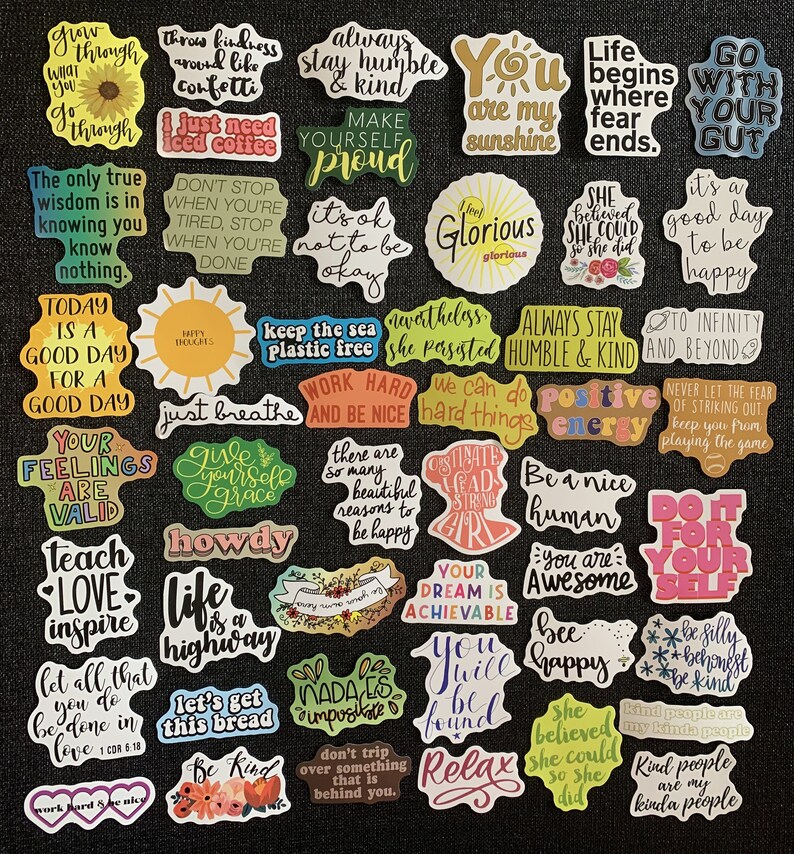 grow
through
WHAT
YOU
go
through
throw kindness
around like
confetti
always
stay humble
& kind
You
are my
sunshine
Life
begins
where
fear
ends.
GO
WITH
YOUR
GUT
i just need
iced coffee
MAKE
YOURSELF
proud
The only true
wisdom is in
knowing you
know
nothing.
DON'T STOP
WHEN YOU'RE
TIRED, STOP
WHEN YOU'RE
DONE
it's ok
not to be
okay
I feel
Glorious
glorious
SHE
believed
SHE COULD
so she did
it's a
good day
to be
happy
TODAY
IS A
GOOD DAY
FOR A
GOOD DAY
HAPPY
THOUGHTS
keep the sea
plastic free
nevertheless,
she persisted
ALWAYS STAY
HUMBLE & KIND
TO INFINITY
AND BEYOND
just breathe
WORK HARD
AND BE NICE
we can do
hard things
positive
energy
NEVER LET THE FEAR
OF STRIKING OUT
keep you from
playing the game
YOUR
FEELINGS
ARE
VALID
give
yourself
grace
there are
so many
beautiful
reasons to
be happy
OBSTINATE
HEAD-
STRONG
GIRL
Be a nice
human
DO IT
FOR
YOUR
SELF
howdy
teach
LOVE
inspire
life
is a
highway
be your own hero
YOUR
DREAM IS
ACHIEVABLE
you are
Awesome
bee
happy
be silly
be honest
be kind
let all that
you do
be done in
love 1 COR 6:18
let's get
this bread
NADA ES
imposible
you
will
be
found
she
believed
she could
so she
did
kind people are
my kinda people
work hard & be nice
Be Kind
don't trip
over something
that is
behind you.
Relax
Kind people
are my
kinda people